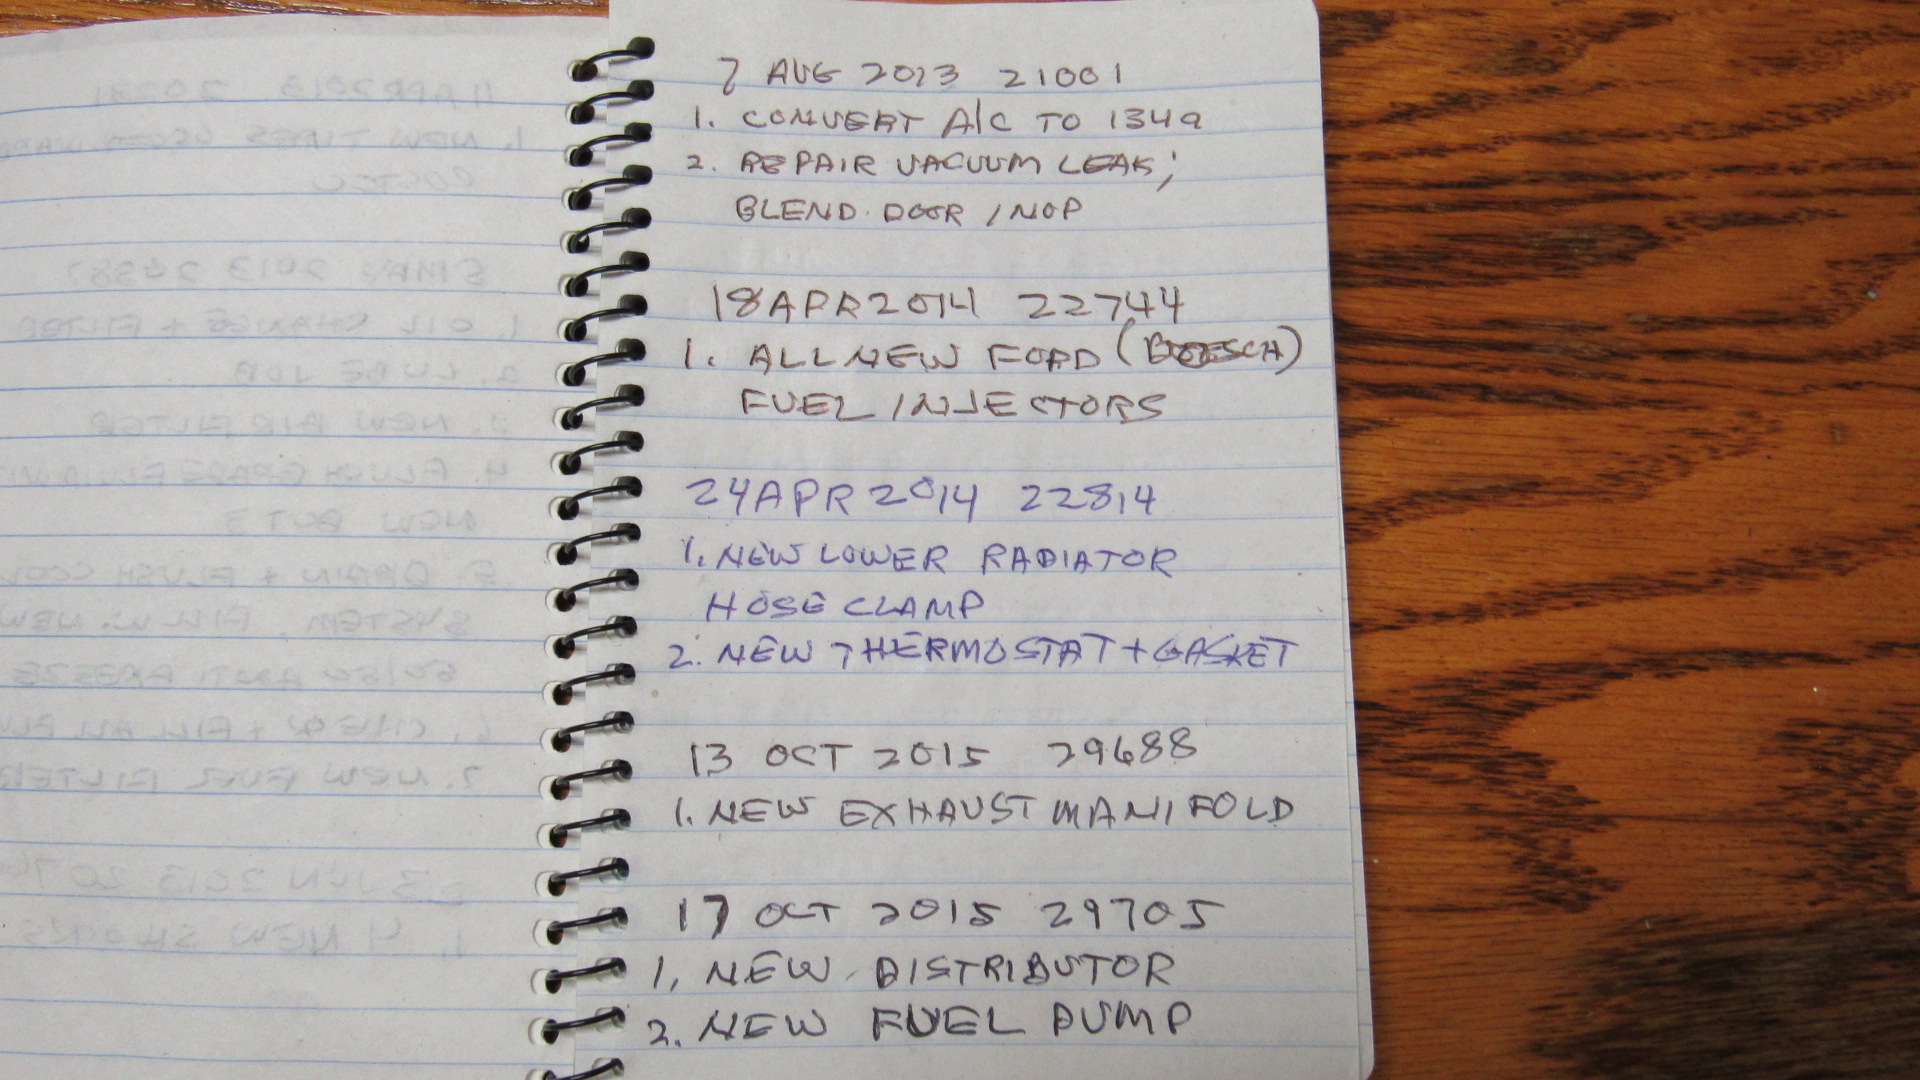 7 AUG 2013 21001
1. CONVERT A/C TO 134a
2. REPAIR VACUUM LEAK;
BLEND DOOR INOP
18 APR 2014 22744
1. ALL NEW FORD (BOESCH)
FUEL INJECTORS
24 APR 2014 22814
1. NEW LOWER RADIATOR
HOSE CLAMP
2. NEW THERMOSTAT + GASKET
13 OCT 2015 29688
1. NEW EXHAUST MANIFOLD
17 OCT 2015 29705
1. NEW DISTRIBUTOR
2. NEW FUEL PUMP